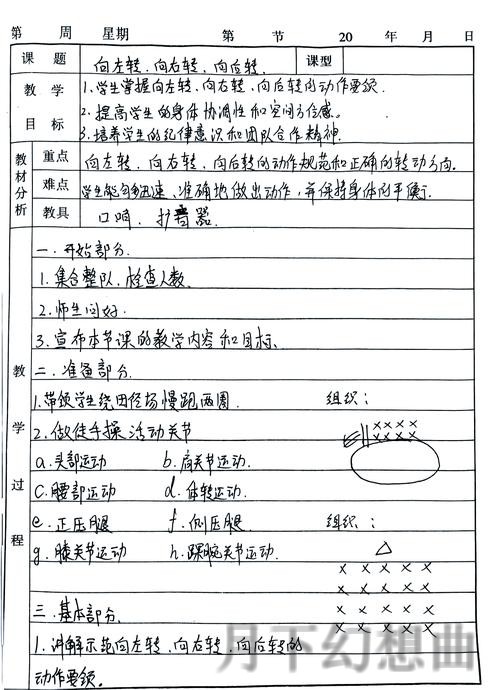 第 周 星期 第 节 20 年 月 日
课 题 向左转、向右转、向后转. 课型
教 学 目 标 1.学生掌握向左转、向右转、向后转的动作要领.
2.提高学生的身体协调性和空间方位感。
3.培养学生的纪律意识和团队合作精神.
教材分析 重点 向左转、向右转、向后转的动作规范和正确的转动方向.
难点 学生能够迅速、准确地做出动作,并保持身体的平衡.
教具 口哨、扩音器
教 学 过 程
一.开始部分.
1.集合整队、检查人数.
2.师生问好.
3.宣布本节课的教学内容和目标、
二.准备部分.
1.带领学生绕田径场慢跑两圈. 组织:
2.做徒手操活动关节
a.头部运动 b.肩关节运动.
c.腰部运动 d.体转运动.
e.正压腿 f.侧压腿 组织:
g.膝关节运动 h.踝腕关节运动.
三.基本部分.
1.讲解示范向左转、向右转、向后转的
动作要领。
月下幻想曲